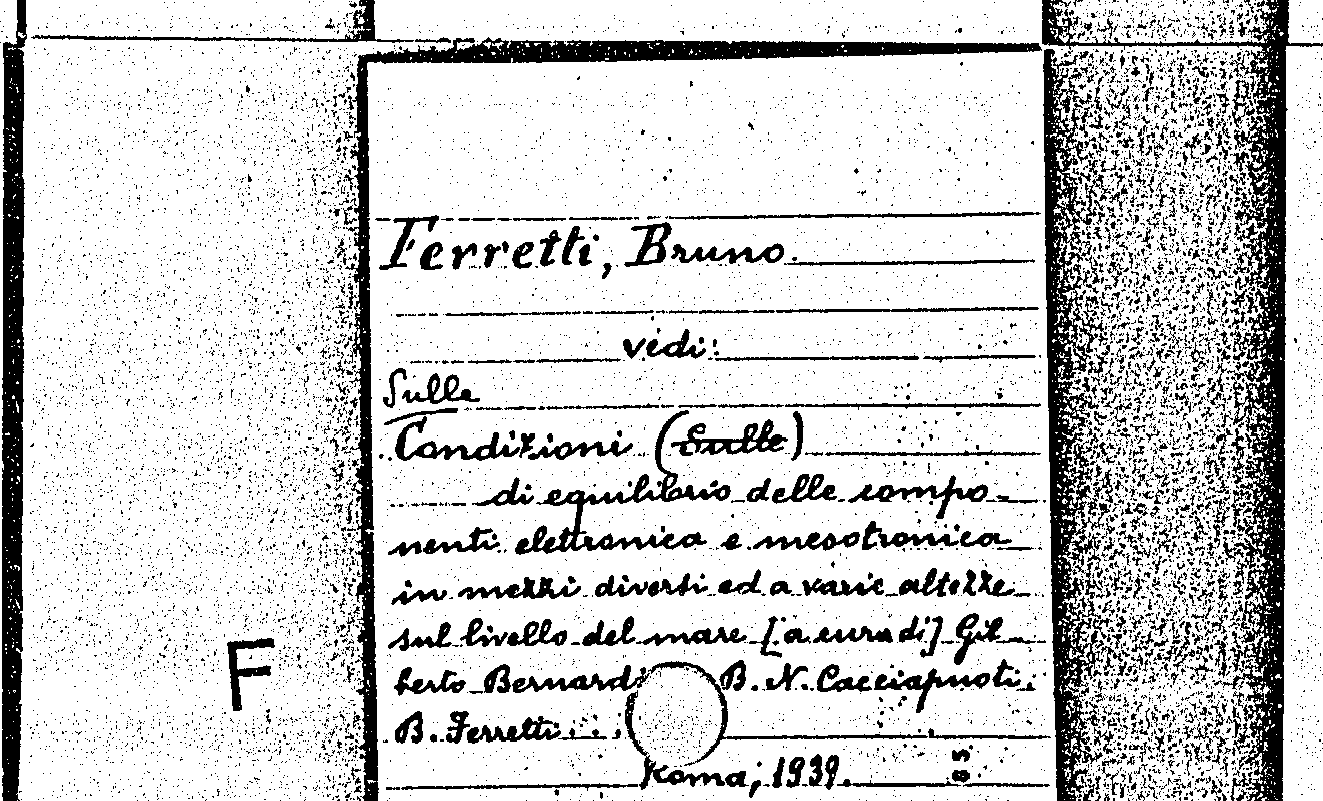 Ferretti, Bruno.
vedi:
Sulle
Condizioni (Sulle)
di equilibrio delle compo-
nenti elettronica e mesotronica
in mezzi diversi ed a varie altezze
sul livello del mare [a cura di] Gil-
berto Bernardi B. N. Cacciapuoti.
B. Ferretti...
F
Roma, 1939.